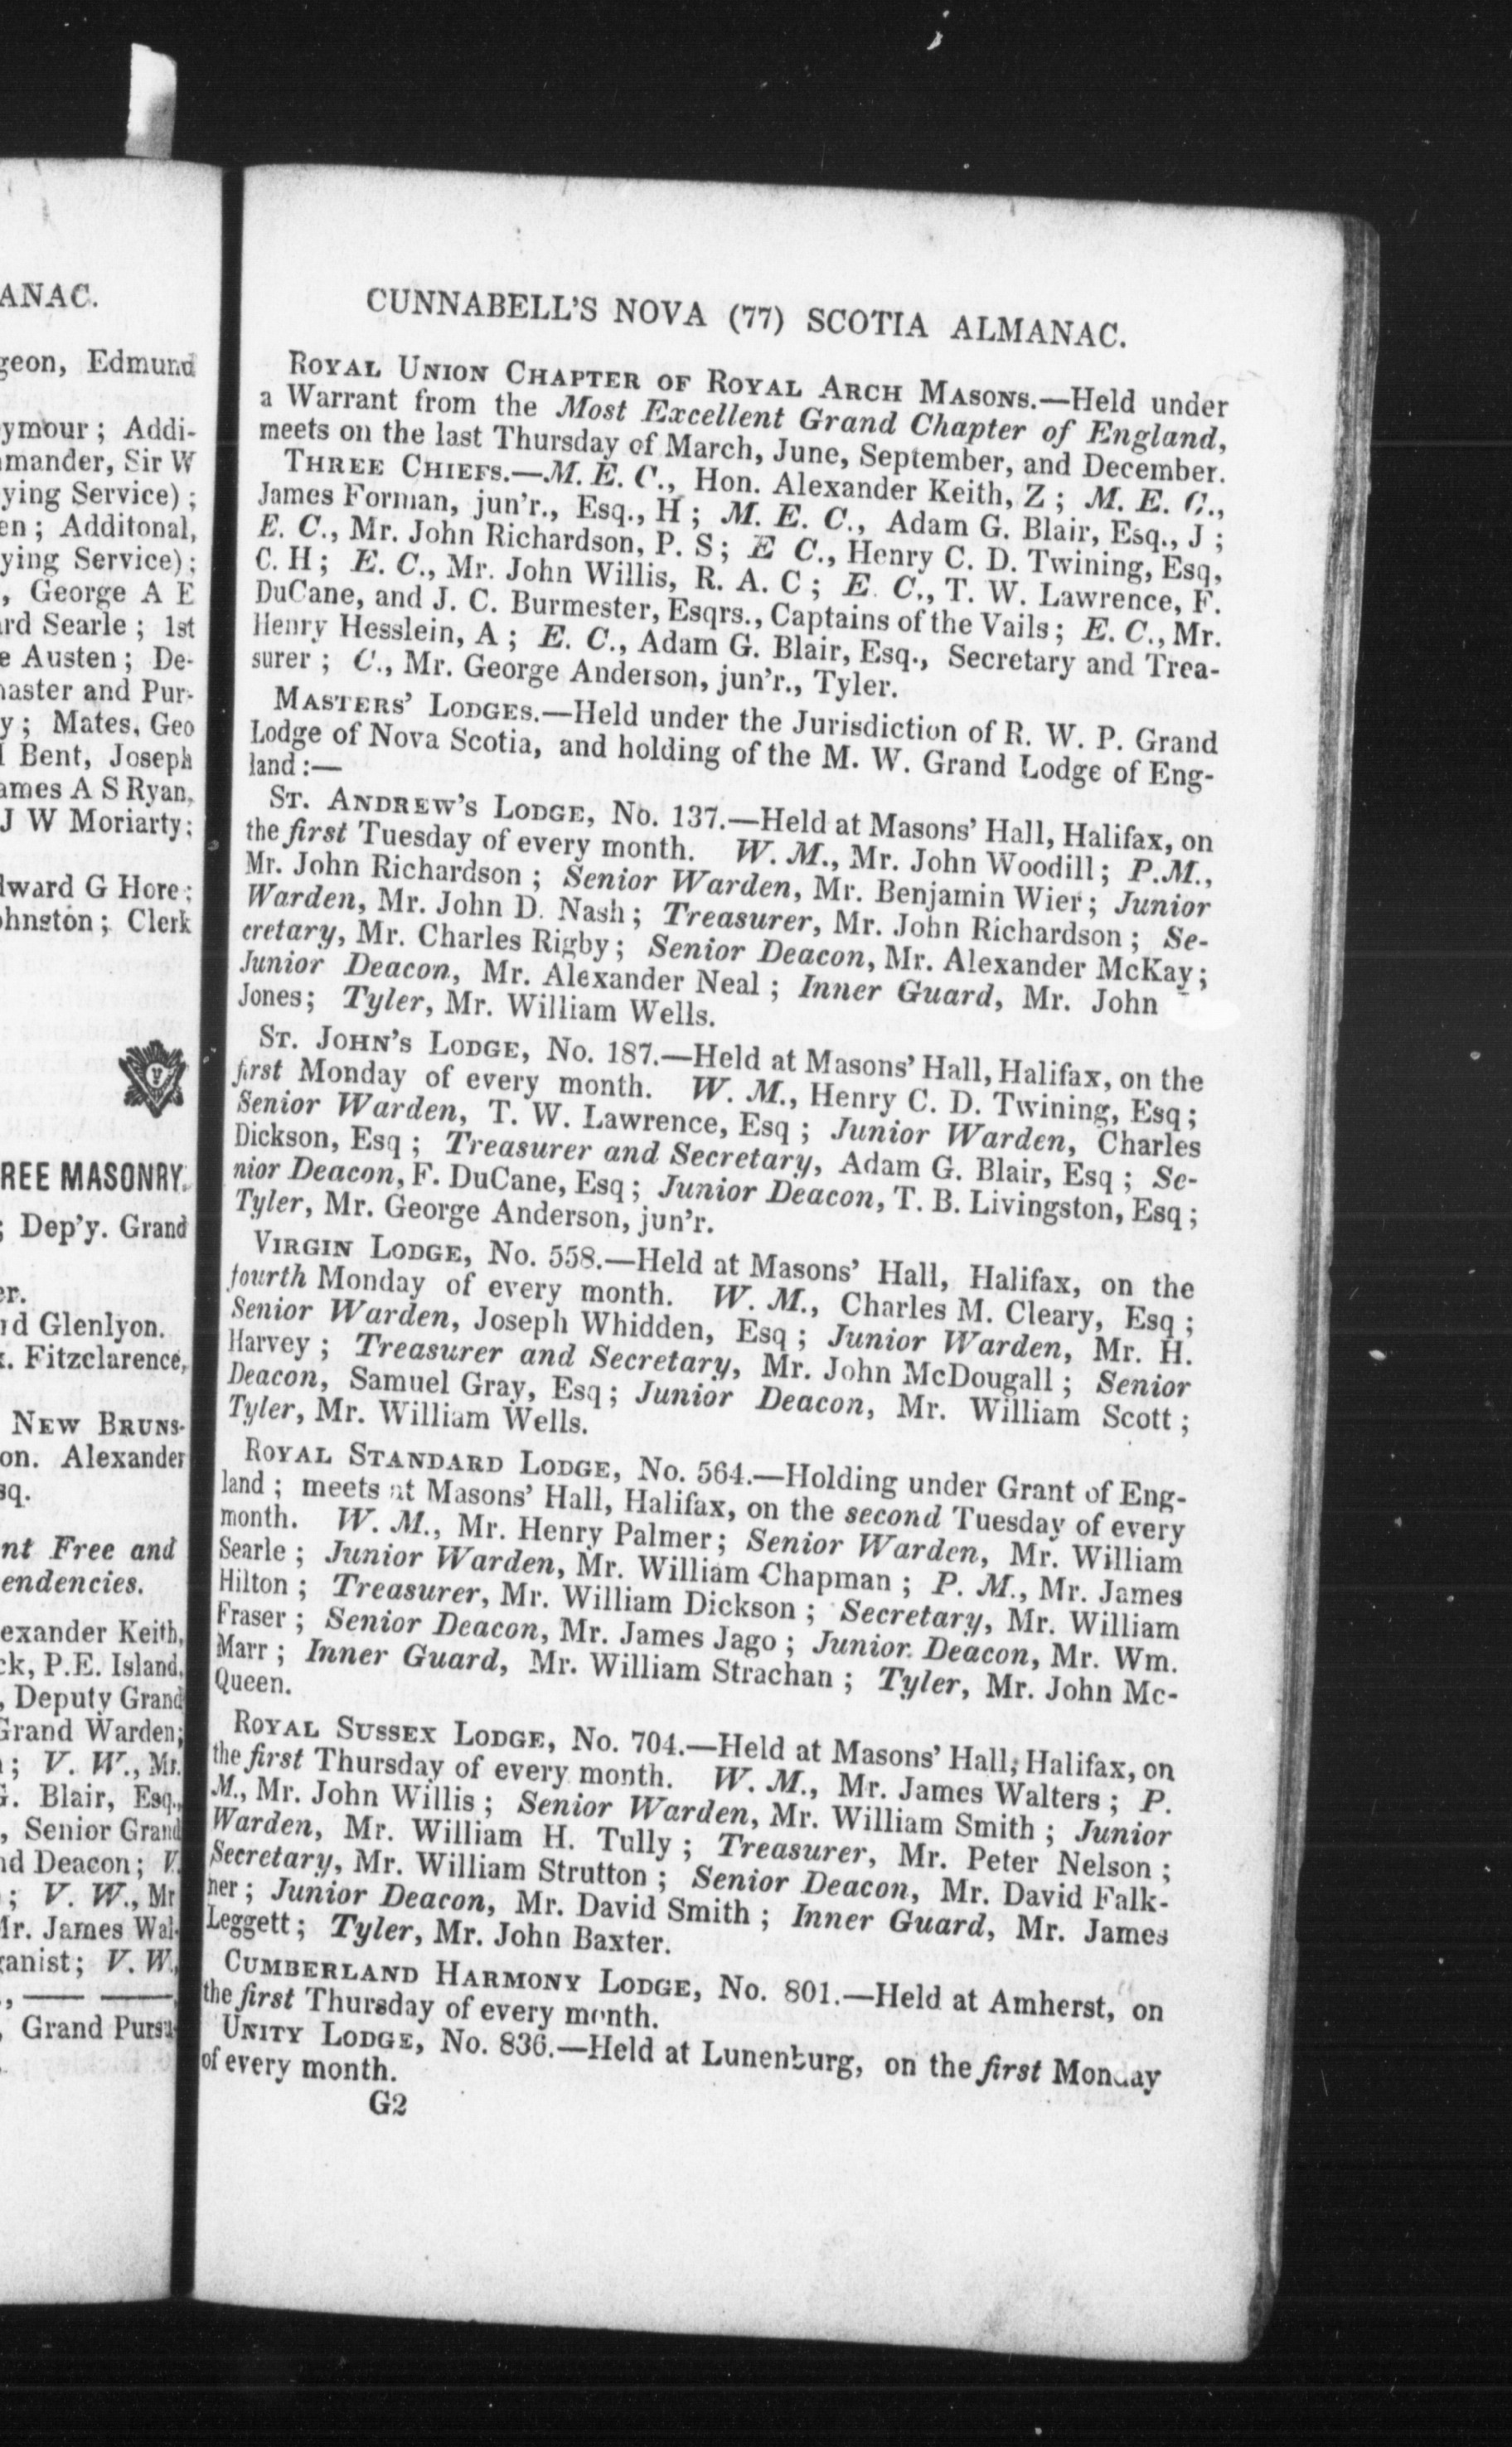 ANAC.
geon, Edmund
ymour; Addi-
mander, Sir W
ying Service);
en; Additonal,
ying Service);
, George A E
ard Searle; 1st
e Austen; De-
aster and Pur-
y; Mates, Geo
Bent, Joseph
ames A S Ryan,
J W Moriarty;
dward G Hore;
ohnston; Clerk
REE MASONRY.
; Dep'y. Grand
er.
d Glenlyon.
. Fitzclarence,
NEW BRUNS-
on. Alexander
sq.
nt Free and
endencies.
exander Keith,
ck, P.E. Island,
, Deputy Grand
Grand Warden;
; V. W., Mr.
G. Blair, Esq.,
, Senior Grand
nd Deacon; V.
; V. W., Mr
Mr. James Wal-
ganist; V. W.,
., —— ——,
, Grand Pursu-
CUNNABELL'S NOVA (77) SCOTIA ALMANAC.
ROYAL UNION CHAPTER OF ROYAL ARCH MASONS.—Held under
a Warrant from the Most Excellent Grand Chapter of England,
meets on the last Thursday of March, June, September, and December.
THREE CHIEFS.—M. E. C., Hon. Alexander Keith, Z; M. E. C.,
James Forman, jun'r., Esq., H; M. E. C., Adam G. Blair, Esq., J;
E. C., Mr. John Richardson, P. S; E C., Henry C. D. Twining, Esq,
C. H; E. C., Mr. John Willis, R. A. C; E. C., T. W. Lawrence, F.
DuCane, and J. C. Burmester, Esqrs., Captains of the Vails; E. C., Mr.
Henry Hesslein, A; E. C., Adam G. Blair, Esq., Secretary and Trea-
surer; C., Mr. George Anderson, jun'r., Tyler.
MASTERS' LODGES.—Held under the Jurisdiction of R. W. P. Grand
Lodge of Nova Scotia, and holding of the M. W. Grand Lodge of Eng-
land:—
ST. ANDREW'S LODGE, No. 137.—Held at Masons' Hall, Halifax, on
the first Tuesday of every month. W. M., Mr. John Woodill; P.M.,
Mr. John Richardson; Senior Warden, Mr. Benjamin Wier; Junior
Warden, Mr. John D. Nash; Treasurer, Mr. John Richardson; Se-
cretary, Mr. Charles Rigby; Senior Deacon, Mr. Alexander McKay;
Junior Deacon, Mr. Alexander Neal; Inner Guard, Mr. John
Jones; Tyler, Mr. William Wells.
ST. JOHN'S LODGE, No. 187.—Held at Masons' Hall, Halifax, on the
first Monday of every month. W. M., Henry C. D. Twining, Esq;
Senior Warden, T. W. Lawrence, Esq; Junior Warden, Charles
Dickson, Esq; Treasurer and Secretary, Adam G. Blair, Esq; Se-
nior Deacon, F. DuCane, Esq; Junior Deacon, T. B. Livingston, Esq;
Tyler, Mr. George Anderson, jun'r.
VIRGIN LODGE, No. 558.—Held at Masons' Hall, Halifax, on the
fourth Monday of every month. W. M., Charles M. Cleary, Esq;
Senior Warden, Joseph Whidden, Esq; Junior Warden, Mr. H.
Harvey; Treasurer and Secretary, Mr. John McDougall; Senior
Deacon, Samuel Gray, Esq; Junior Deacon, Mr. William Scott;
Tyler, Mr. William Wells.
ROYAL STANDARD LODGE, No. 564.—Holding under Grant of Eng-
land; meets at Masons' Hall, Halifax, on the second Tuesday of every
month. W. M., Mr. Henry Palmer; Senior Warden, Mr. William
Searle; Junior Warden, Mr. William Chapman; P. M., Mr. James
Hilton; Treasurer, Mr. William Dickson; Secretary, Mr. William
Fraser; Senior Deacon, Mr. James Jago; Junior. Deacon, Mr. Wm.
Marr; Inner Guard, Mr. William Strachan; Tyler, Mr. John Mc-
Queen.
ROYAL SUSSEX LODGE, No. 704.—Held at Masons' Hall, Halifax, on
the first Thursday of every month. W. M., Mr. James Walters; P.
M., Mr. John Willis; Senior Warden, Mr. William Smith; Junior
Warden, Mr. William H. Tully; Treasurer, Mr. Peter Nelson;
Secretary, Mr. William Strutton; Senior Deacon, Mr. David Falk-
ner; Junior Deacon, Mr. David Smith; Inner Guard, Mr. James
Leggett; Tyler, Mr. John Baxter.
CUMBERLAND HARMONY LODGE, No. 801.—Held at Amherst, on
the first Thursday of every month.
UNITY LODGE, No. 836.—Held at Lunenburg, on the first Monday
of every month.
G2